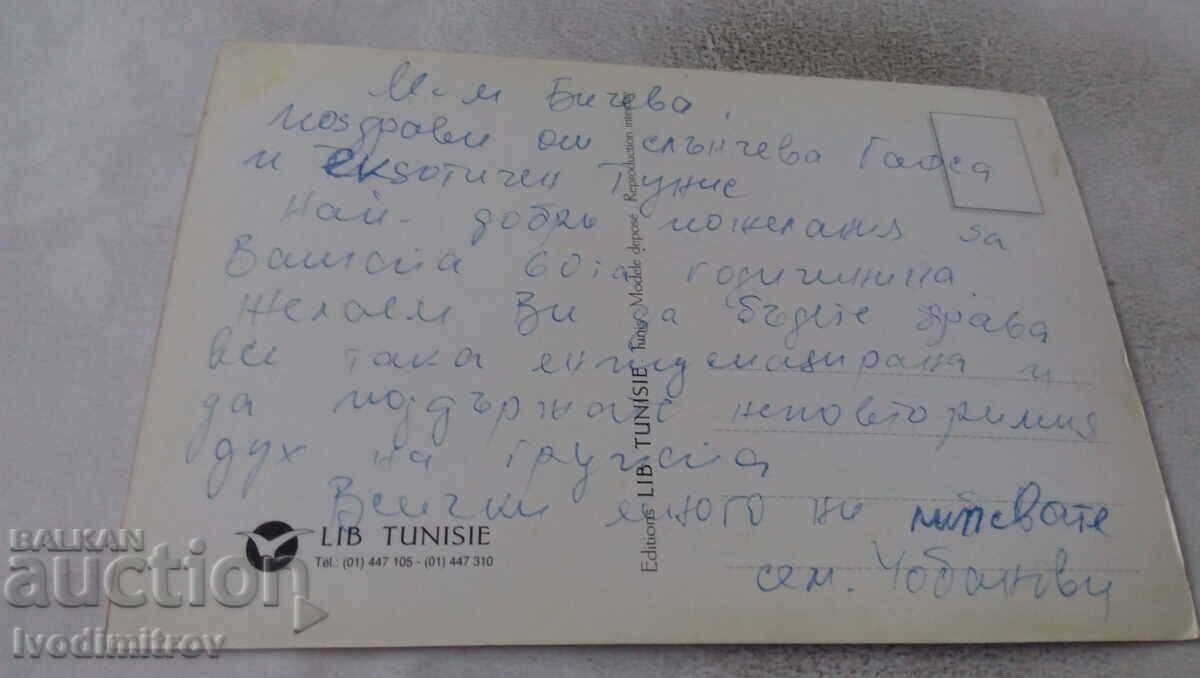 М-м Бичева,
поздрави от слънчева Гафса
и екзотичен Тунис
Най-добри пожелания за
Вашата 60та годишнина
Желаем Ви да бъдете здрава
все така и
да поддържате неповторимия
дух на групата
Всички много ни липсвате
сем. Чобанови
LIB TUNISIE
Tél.: (01) 447 105 - (01) 447 310
Editions LIB TUNISIE Tunis Modèle déposé Reproduction interdite
BALKAN
auction
Ivodimitrov